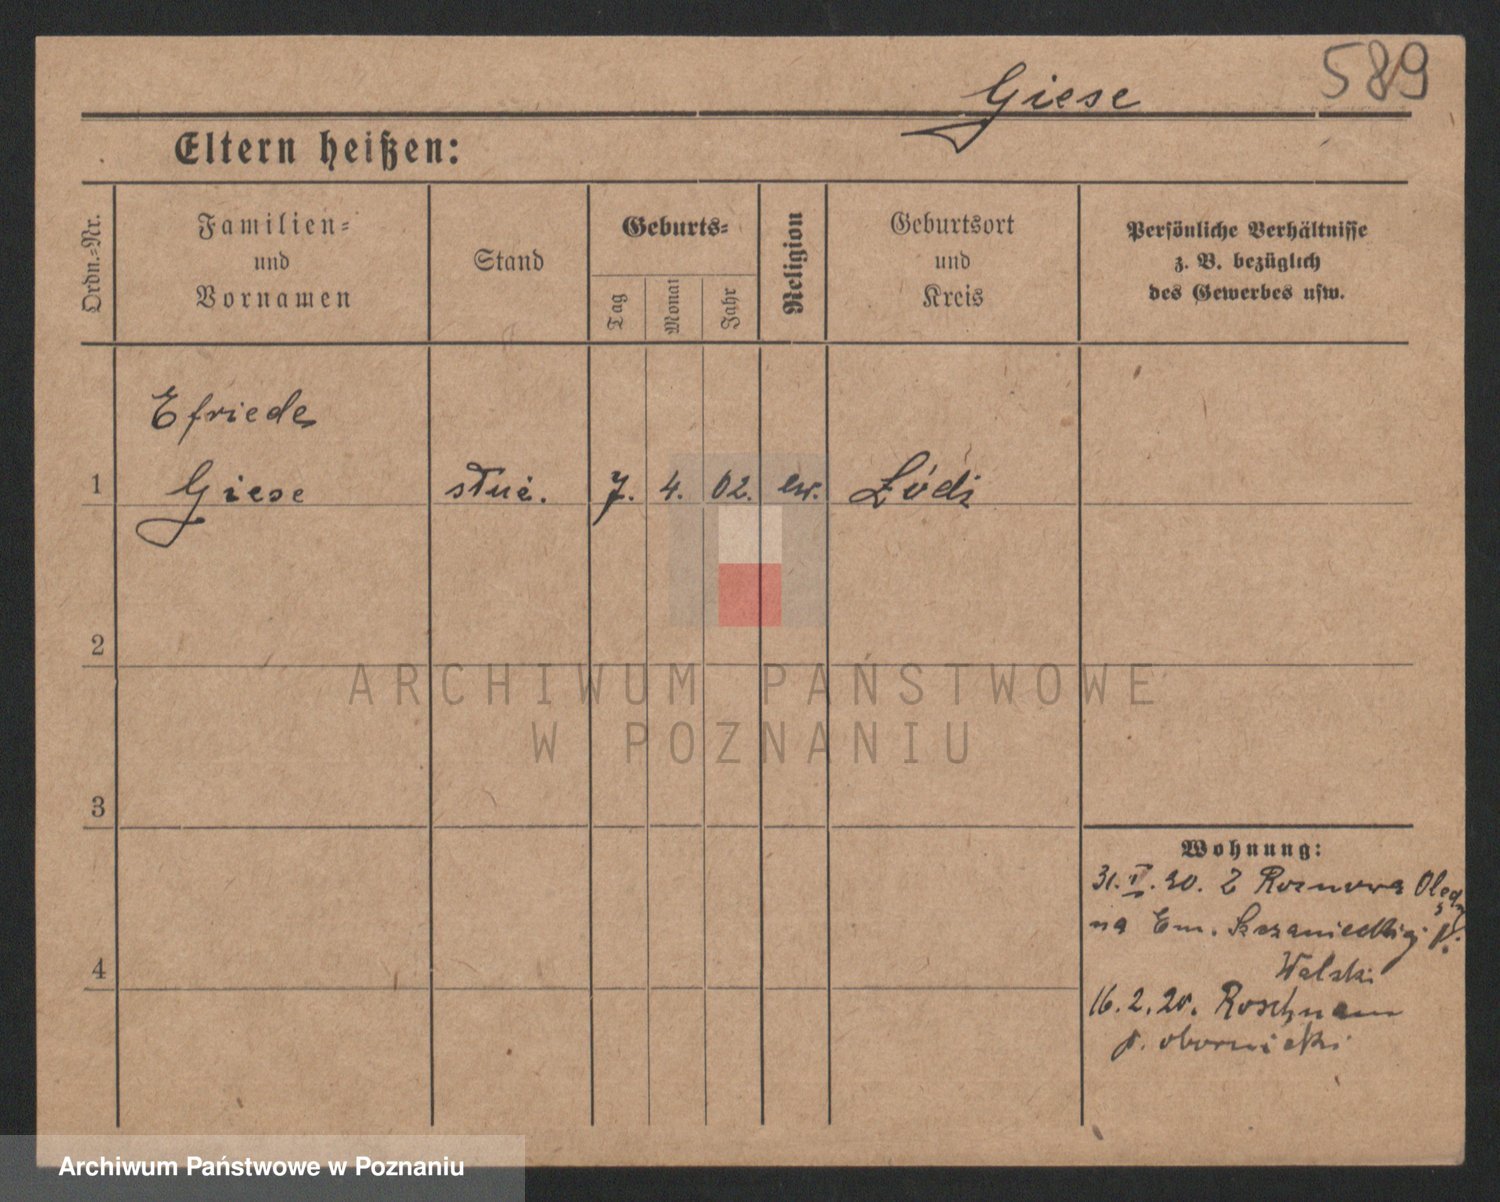 589
Giese
Eltern heißen:
Ordn.=Nr.
Familien=
und
Vornamen
Stand
Geburts=
Tag
Monat
Jahr
Religion
Geburtsort
und
Kreis
Persönliche Verhältnisse
z. B. bezüglich
des Gewerbes usw.
Efriede
1 Giese 7. 4. 02. ew. Łódź
2
3
4
Wohnung:
31. V. 20. Z
na Em.
Walski
16. 2. 20.
p. obornicki
ARCHIWUM PAŃSTWOWE
W POZNANIU
Archiwum Państwowe w Poznaniu